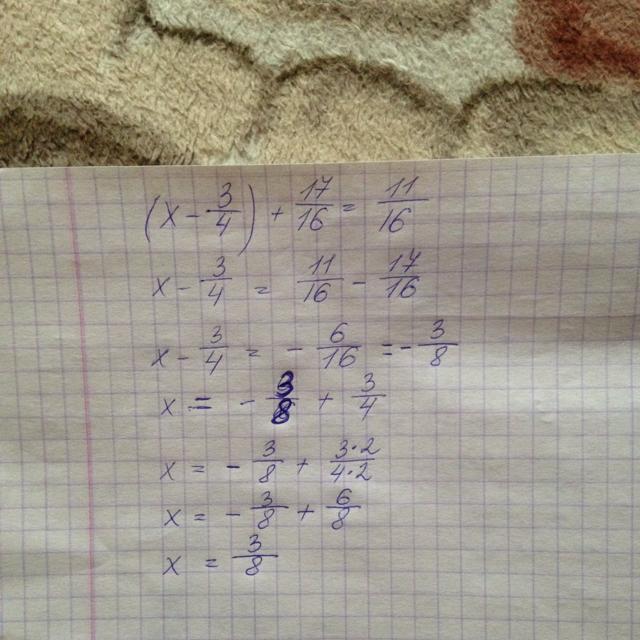 (x - 3/4) + 17/16 = 11/16
x - 3/4 = 11/16 - 17/16
x - 3/4 = - 6/16 = - 3/8
x = - 3/8 + 3/4
x = - 3/8 + 3·2/4·2
x = - 3/8 + 6/8
x = 3/8